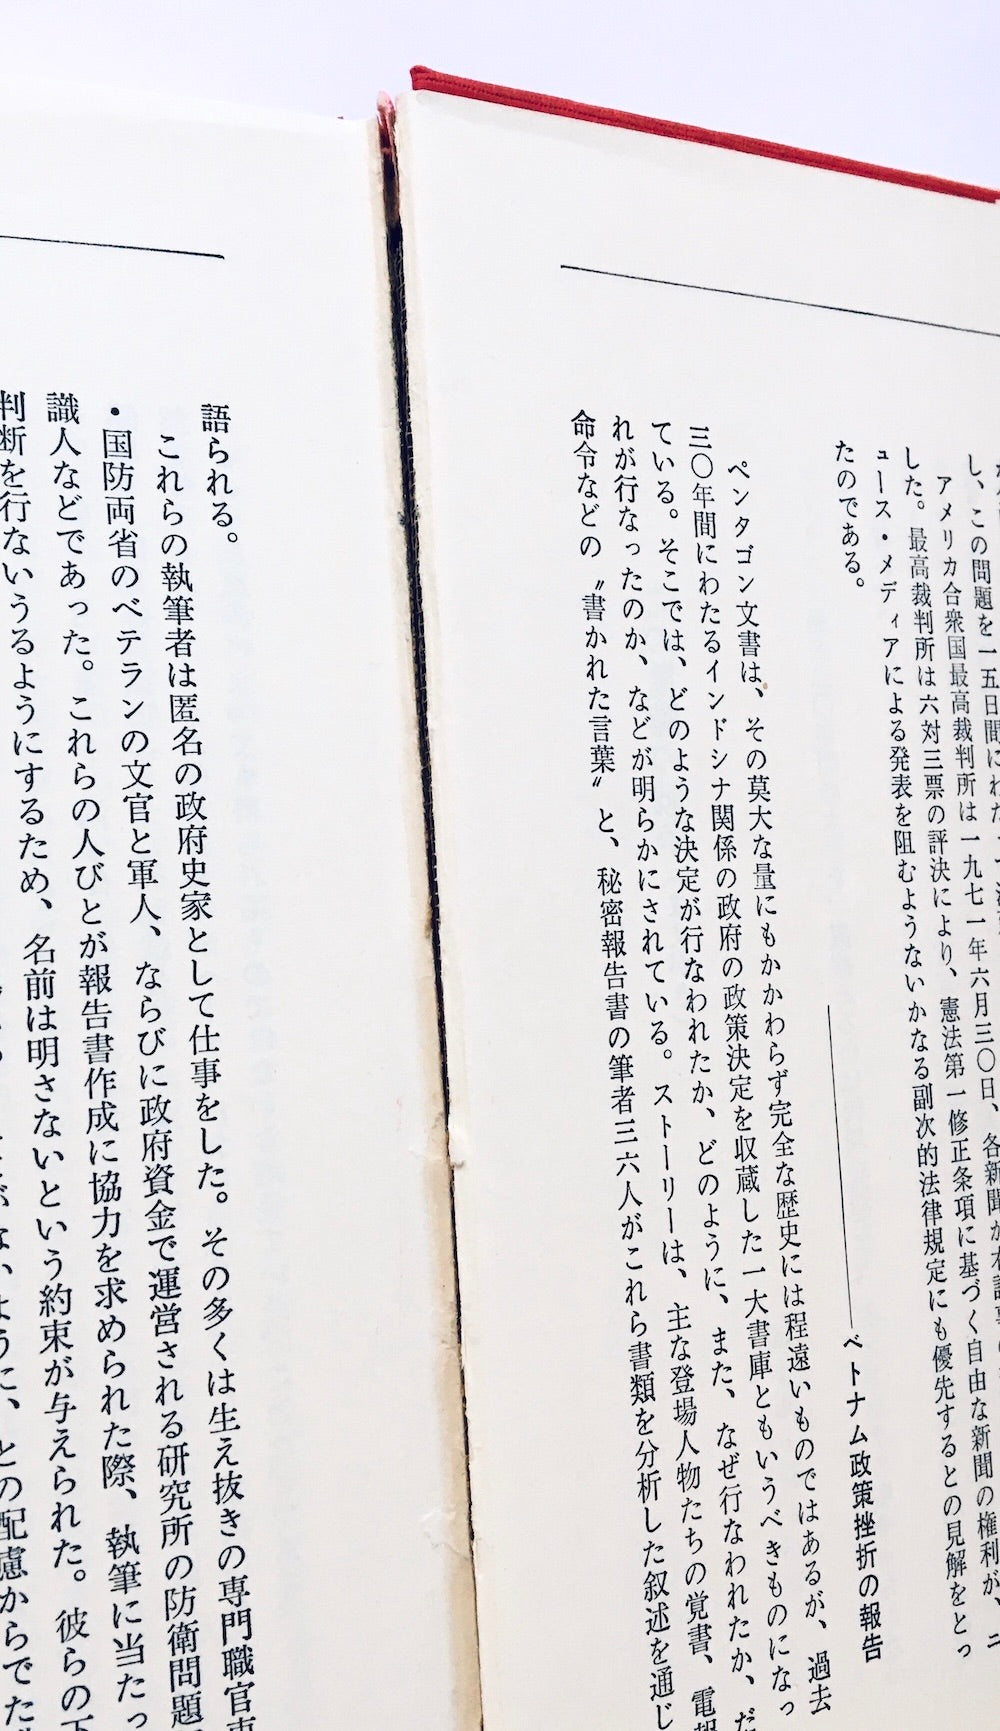 し、この問題を一五日間にわた
アメリカ合衆国最高裁判所は一九七一年六月三〇日、各新聞が
した。最高裁判所は六対三票の評決により、憲法第一修正条項に基づく自由な新聞の権利が、ニ
ュース・メディアによる発表を阻むようないかなる副次的法律規定にも優先するとの見解をとっ
たのである。
――ベトナム政策挫折の報告
ペンタゴン文書は、その莫大な量にもかかわらず完全な歴史には程遠いものではあるが、過去
三〇年間にわたるインドシナ関係の政府の政策決定を収蔵した一大書庫ともいうべきものになっ
ている。そこでは、どのような決定が行なわれたか、どのように、また、なぜ行なわれたか、だ
れが行なったのか、などが明らかにされている。ストーリーは、主な登場人物たちの覚書、電報
命令などの〝書かれた言葉〟と、秘密報告書の筆者三六人がこれら書類を分析した叙述を通じ
語られる。
これらの執筆者は匿名の政府史家として仕事をした。その多くは生え抜きの専門職官
・国防両省のベテランの文官と軍人、ならびに政府資金で運営される研究所の防衛問題
識人などであった。これらの人びとが報告書作成に協力を求められた際、執筆に当たっ
判断を行ないうるようにするため、名前は明さないという約束が与えられた。彼らの下
ように、との配慮からでた